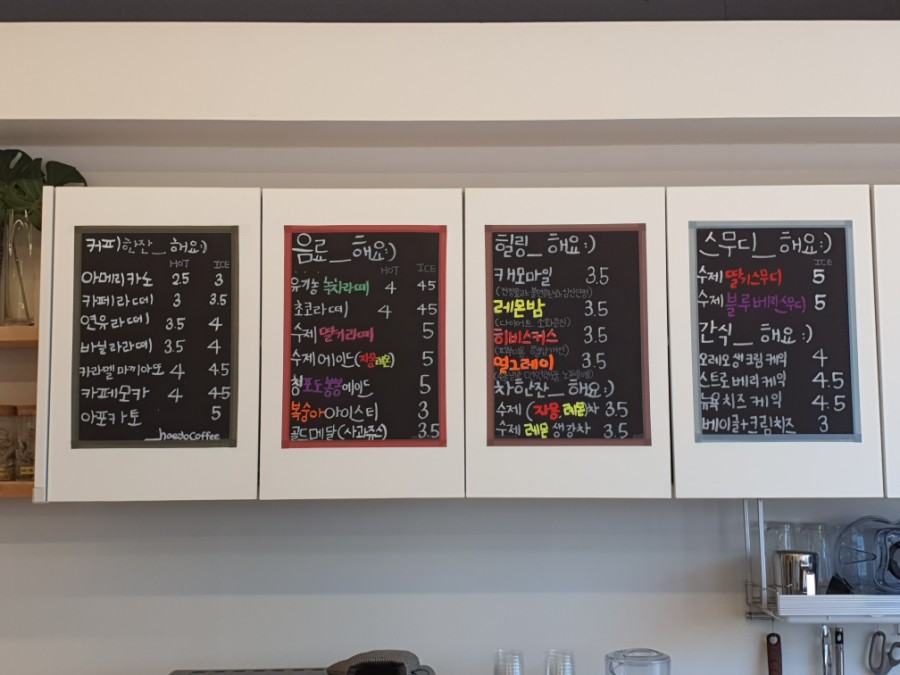 커피 한잔 _ 해요:)
HOT ICE
아메리카노 2.5 3
카페라떼 3 3.5
연유라떼 3.5 4
바닐라라떼 3.5 4
카라멜 마끼아또 4 4.5
카페모카 4 4.5
아포카토 5
_haedoCoffee
음료 _ 해요:)
HOT ICE
유기농 녹차라떼 4 4.5
초코라떼 4 4.5
수제 딸기라떼 5
수제 에이드(자몽레몬) 5
청포도봉봉에이드 5
복숭아아이스티 3
골드메달(사과쥬스) 3.5
힐링 _ 해요:)
캐모마일 3.5
레몬밤 3.5
히비스커스 3.5
얼그레이 3.5
차한잔 _ 해요:)
수제 (자몽,레몬)차 3.5
수제 레몬 생강차 3.5
스무디 _ 해요:)
ICE
수제 딸기스무디 5
수제 블루베리스무디 5
간식 _ 해요:)
오레오 생크림케익 4
스트로베리케익 4.5
뉴욕치즈케익 4.5
베이글+크림치즈 3